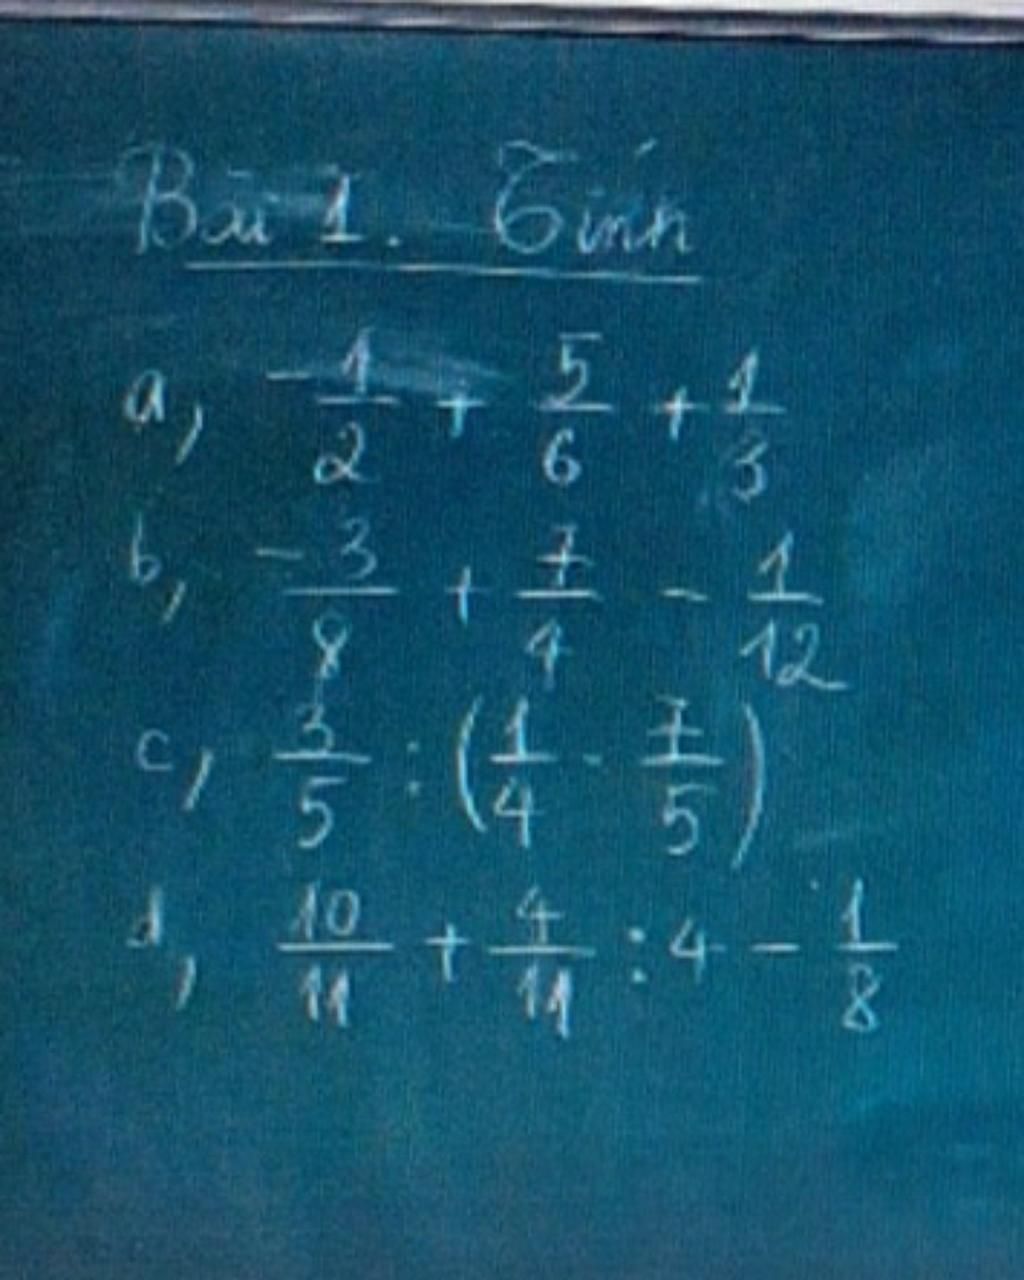 Bài 1. Tính
a, -1/2 + 5/6 + 1/3
b, -3/8 + 7/4 - 1/12
c, 3/5 : (1/4 - 7/5)
d, 10/11 + 4/11 : 4 - 1/8